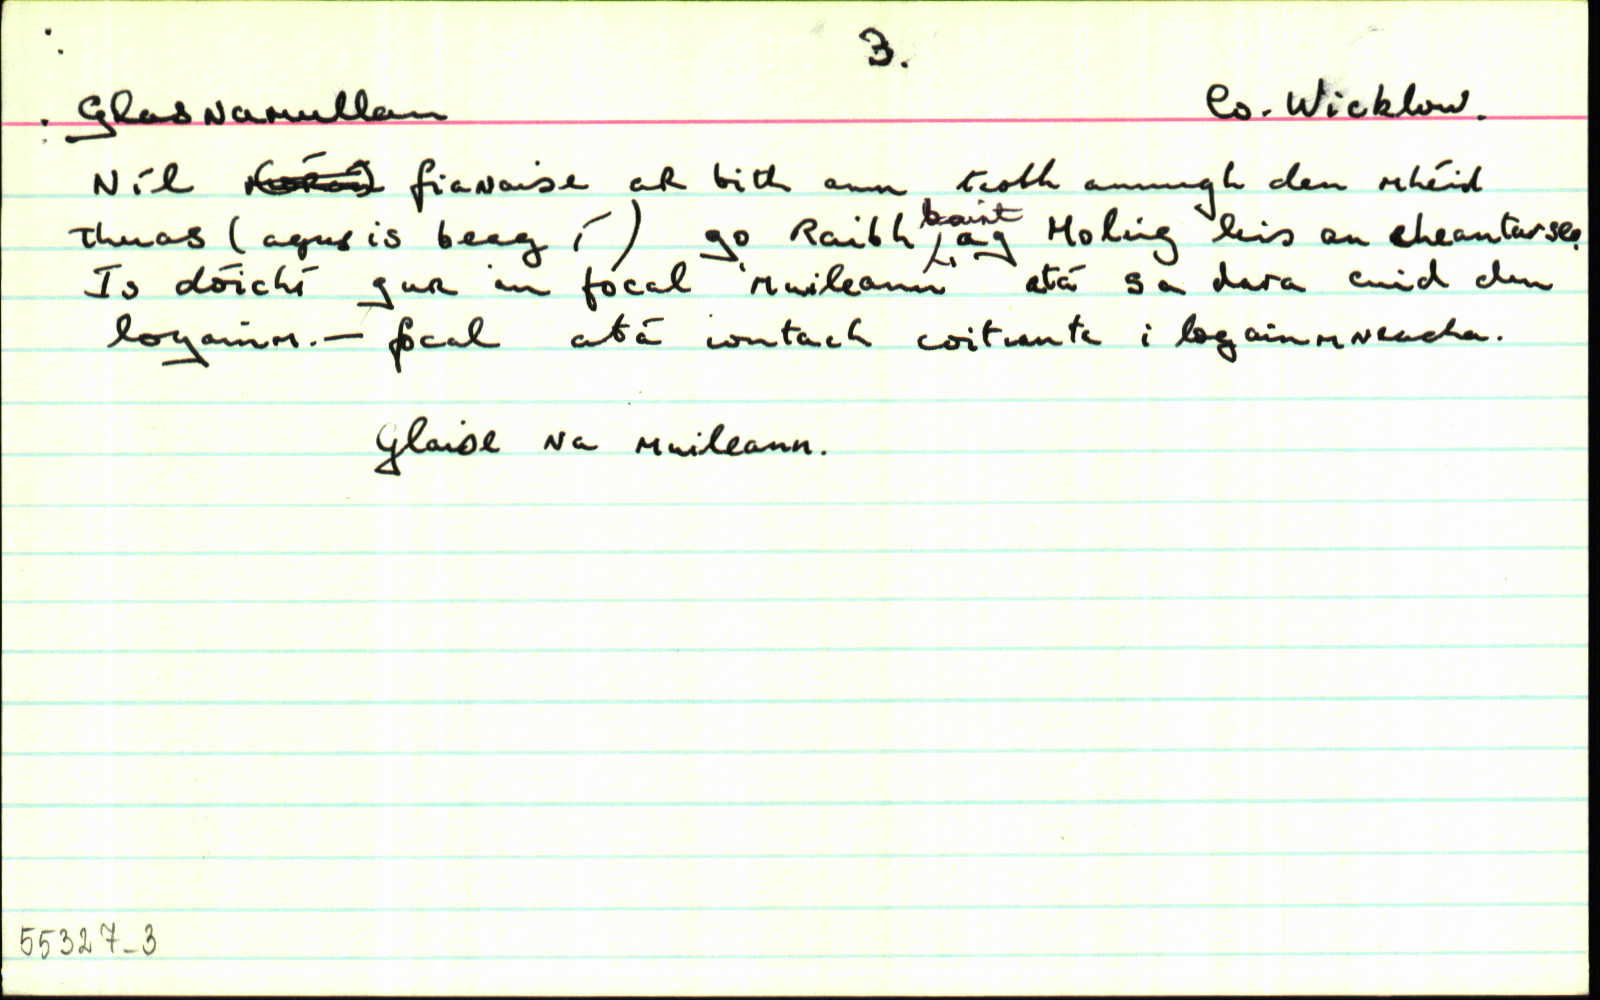 3.
Glasnamullen Co. Wicklow.
Níl fianaise ar bith ann taobh amuigh den mhéid
thuas (agus is beag í) go raibh baint ag Moling leis an cheantar seo.
Is dóichí gur an focal "muileann" atá sa dara cuid den
logainm. — focal atá iontach coitianta i logainmneacha.
Glaise na Muileann.
55327-3